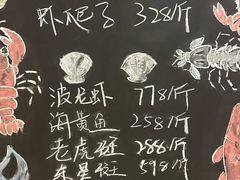 虾爬子 328/斤
波龙虾 778/斤
海黄鱼 258/斤
老虎斑 288/斤
东星斑 598/斤